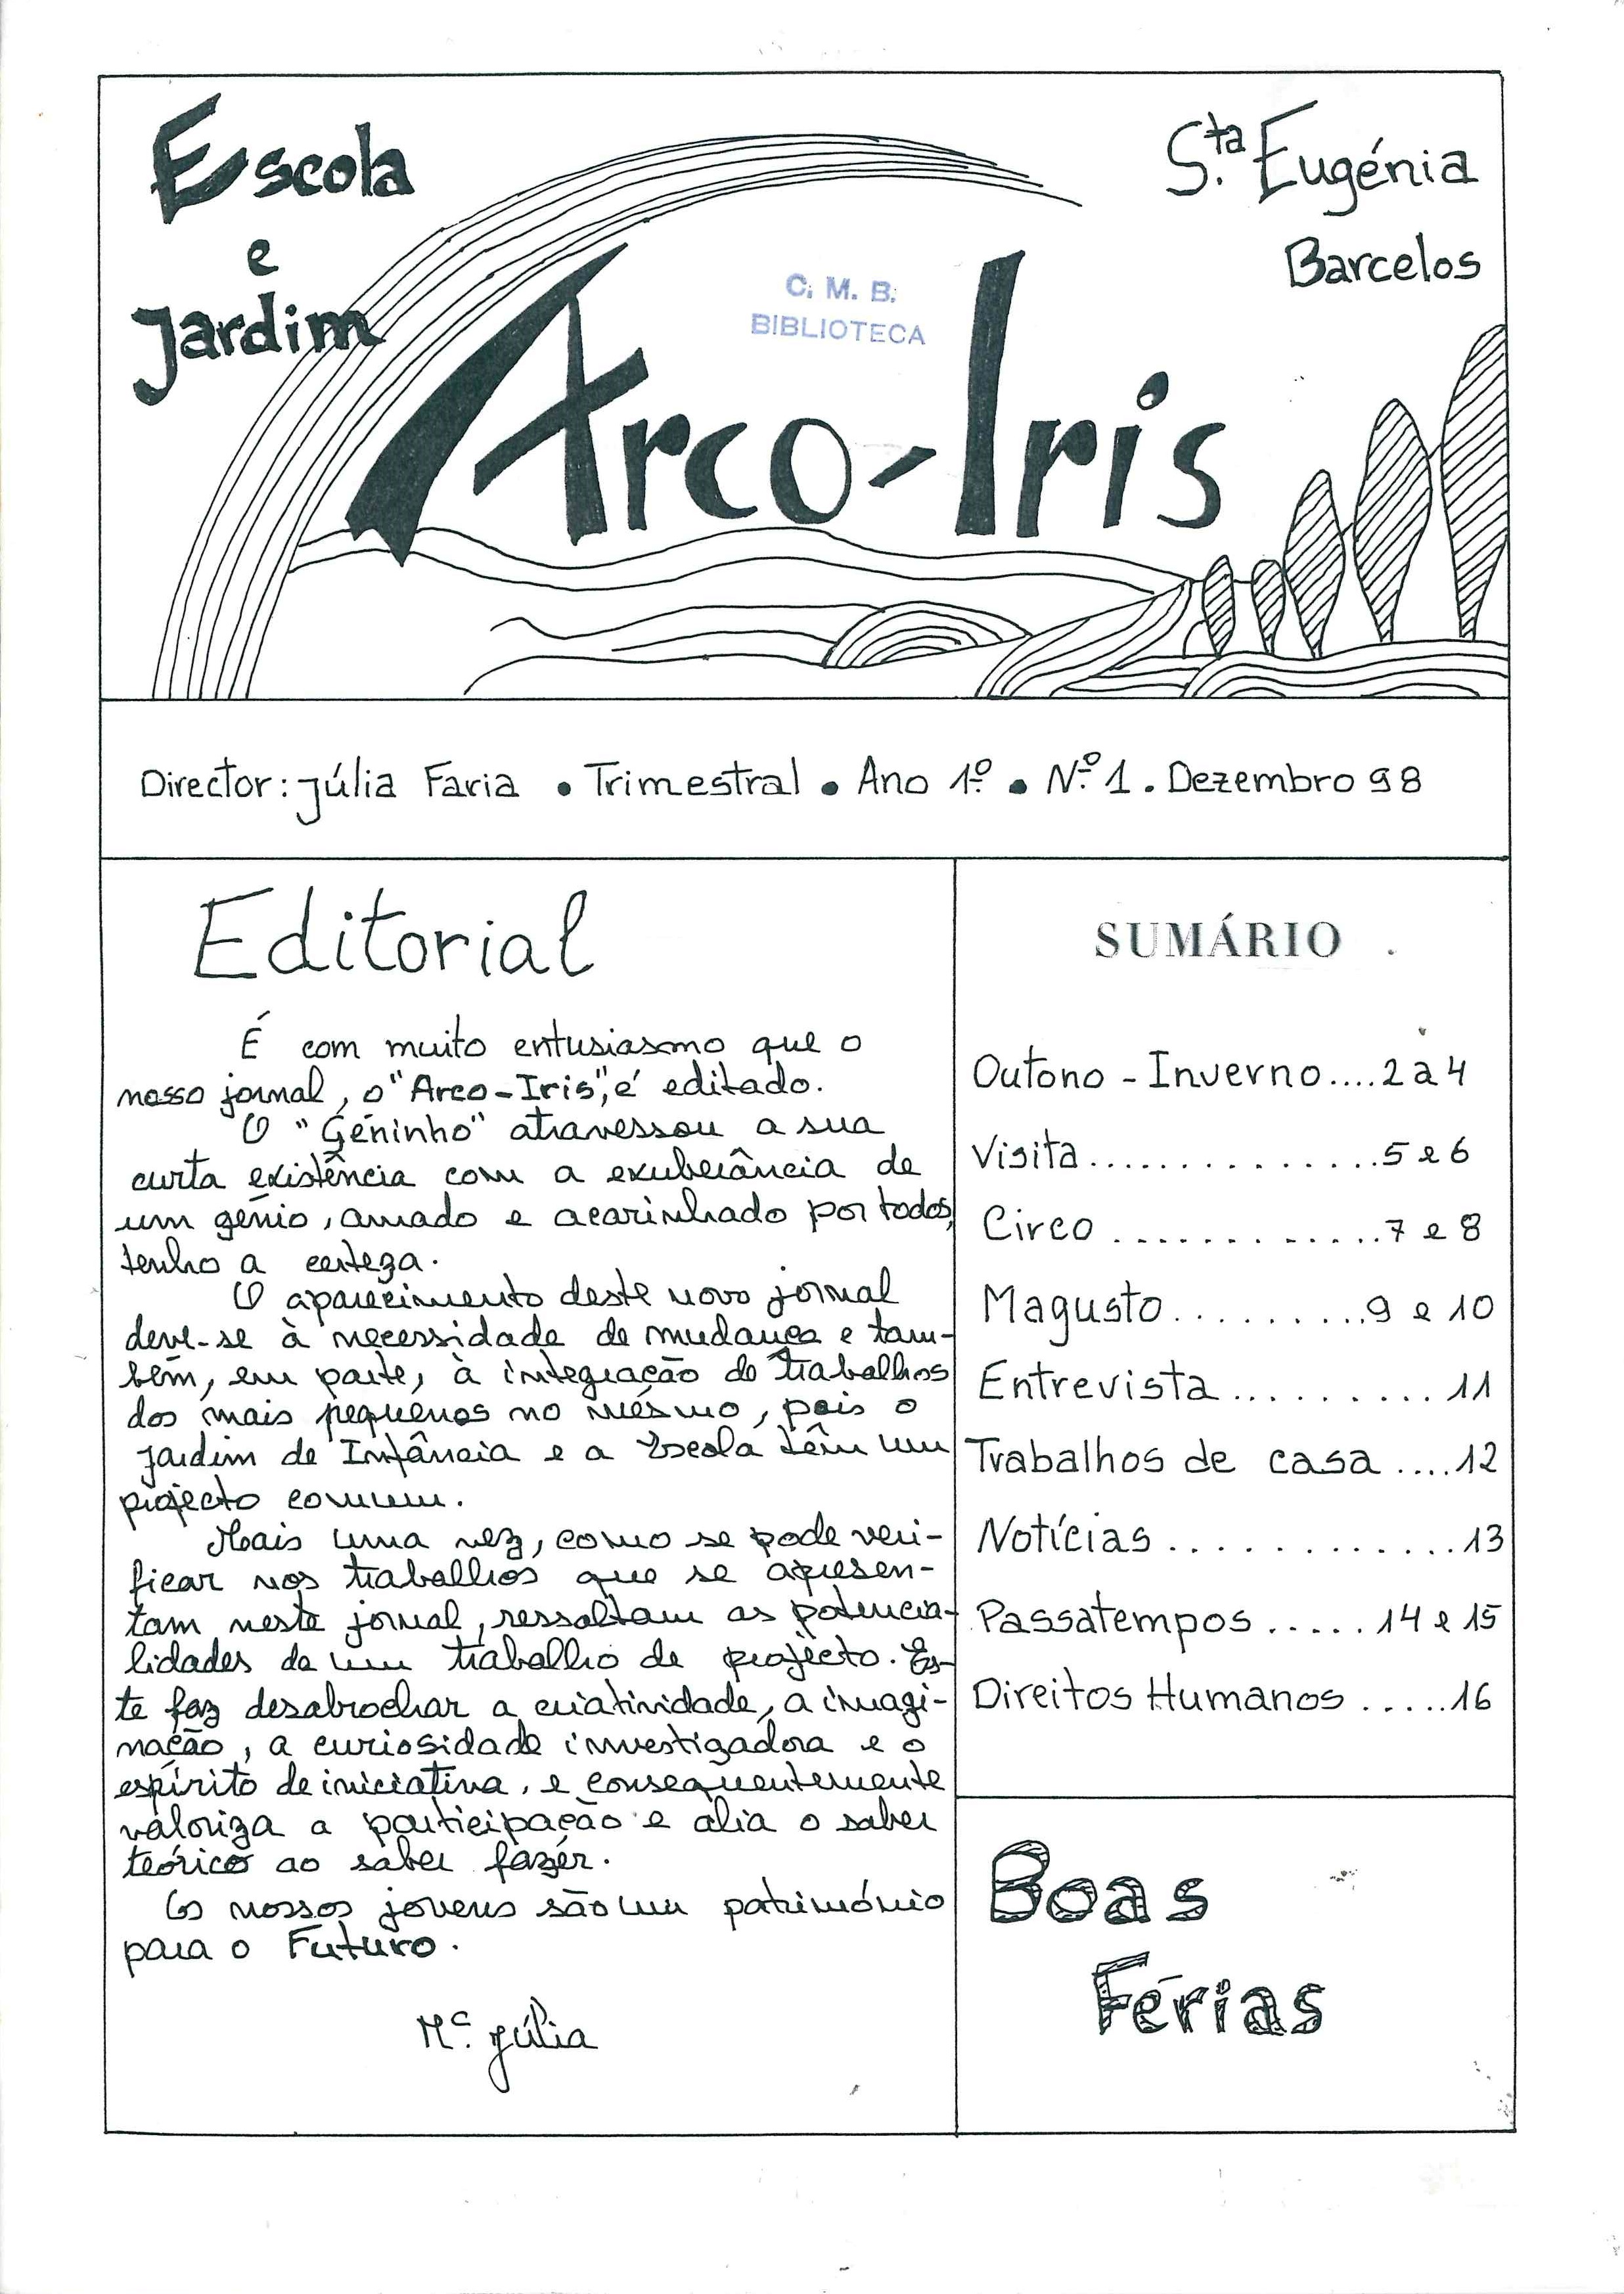 Escola
e
Jardim
Sta. Eugénia
Barcelos
C. M. B.
BIBLIOTECA
Arco-Iris
Director: Júlia Faria • Trimestral • Ano 1º • Nº 1. Dezembro 98
Editorial
É com muito entusiasmo que o
nosso jornal, o "Arco-Iris", é editado.
O "Géninho" atravessou a sua
curta existência com a exuberância de
um génio, amado e acarinhado por todos,
tenho a certeza.
O aparecimento deste novo jornal
deve-se à necessidade de mudança e tam-
bém, em parte, à integração de trabalhos
dos mais pequenos no mesmo, pois o
Jardim de Infância e a Escola têm um
projecto comum.
Mais uma vez, como se pode veri-
ficar nos trabalhos que se apresen-
tam neste jornal, ressaltam as potencia-
lidades de um trabalho de projecto. Es-
te faz desabrochar a criatividade, a imagi-
nação, a curiosidade investigadora e o
espírito de iniciativa, e consequentemente
valoriza a participação e alia o saber
teórico ao saber fazer.
Os nossos jovens são um património
para o Futuro.
Mª. Júlia
SUMÁRIO
Outono - Inverno....2 a 4
Visita...............5 e 6
Circo .............7 e 8
Magusto..........9 e 10
Entrevista.......... 11
Trabalhos de casa ....12
Notícias .............13
Passatempos ..... 14 e 15
Direitos Humanos .....16
Boas
Férias